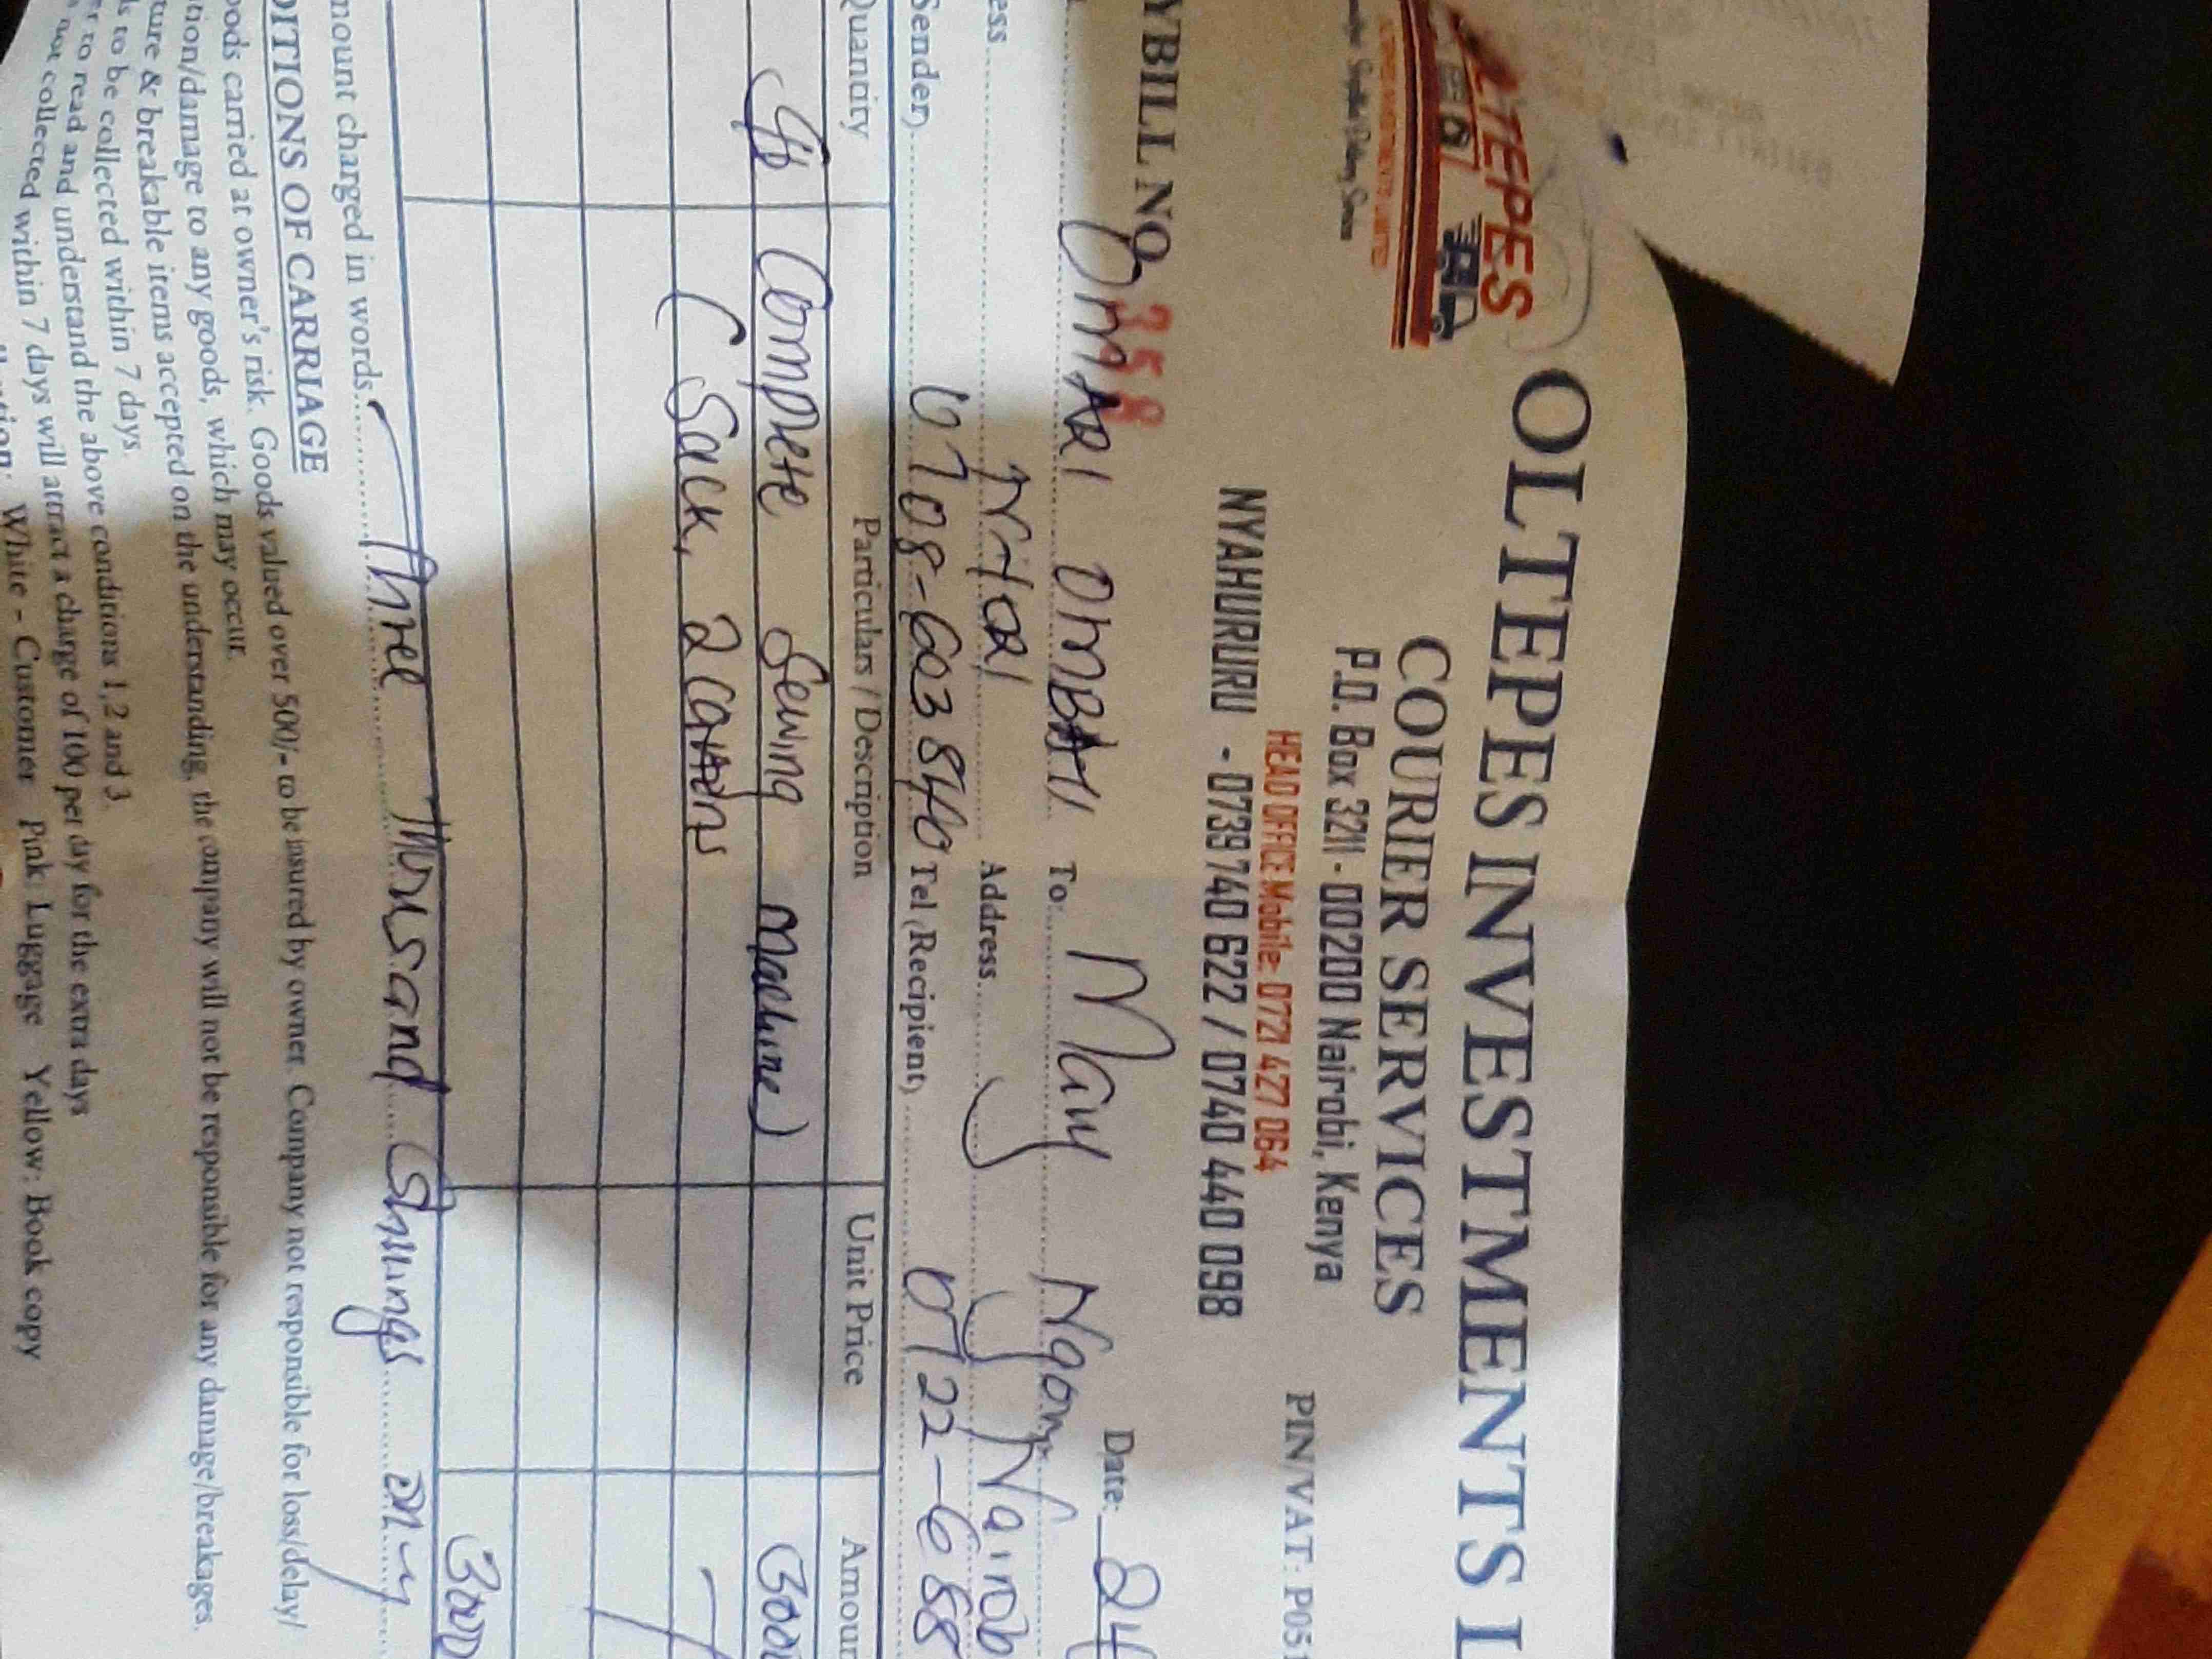 OLTEPES INVESTMENTS L
COURIER SERVICES
P.O. Box 3211 - 00200 Nairobi, Kenya
HEAD OFFICE Mobile: 0721 427 064
PIN/VAT: P051
NYAHURURU - 0739 740 622 / 0740 440 098
ATEPES
YBILL NO 3558
Date: 24
OMARI OMBATI To: Mary
ess Address Nairob
Sender) 0708-603840 Tel (Recipient) 0722-688
Quantity Particulars / Description Unit Price Amoun
Complete Sewing machine) 3000
(Sack, 2 cartons
3000
mount charged in words Three Thousand Shillings only
DITIONS OF CARRIAGE
oods carried at owner's risk. Goods valued over 500/- to be insured by owner. Company not responsible for loss/delay/
tion/damage to any goods, which may occur.
ture & breakable items accepted on the understanding, the company will not be responsible for any damage/breakages.
s to be collected within 7 days
r to read and understand the above conditions 1, 2 and 3
not collected within 7 days will attract a charge of 100 per day for the extra days
White - Customer Pink: Luggage Yellow: Book copy